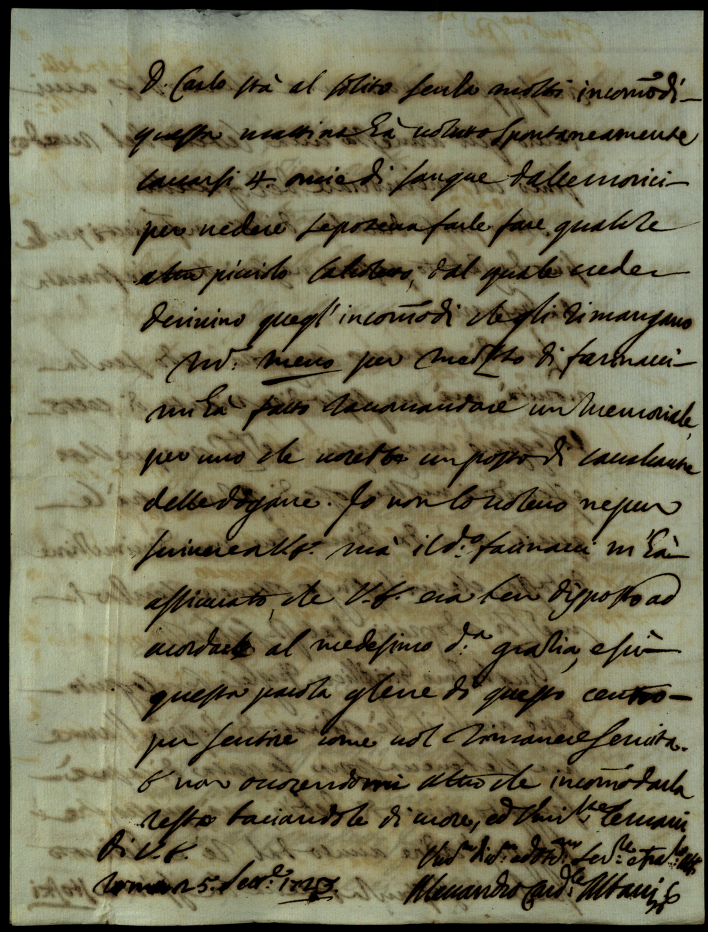 D. Carlo stà al solito senza molti incomodi
questa mattina hà voluto spontaneamente
cavarsi 4. oncie di sangue dalle morici
per vedere se poteva farle fare qualche
altro piccolo, dal quale
derivino quegl'incomodi che gli rimangano
meno per mezzo di farinacci
mi hà fatto racomandare un memoriale
per uno che vorebbe un posto di cavalcante
delle dogane. Io non lo volevo nepur
scrivere a V.S. mà il d.º farinacci m'hà
assicurato, che V.S. era ben disposto ad
acordare al medesimo d.ª grazia, e sù
questa parola gliene dò questo cenno
per sentire come vol rimanere servita.
E non occorendomi altro che incomodarla
resto baciandole di cuore, ed le mani
Di V.S.
Roma 25. Sett.
Alessandro Card.le Albani